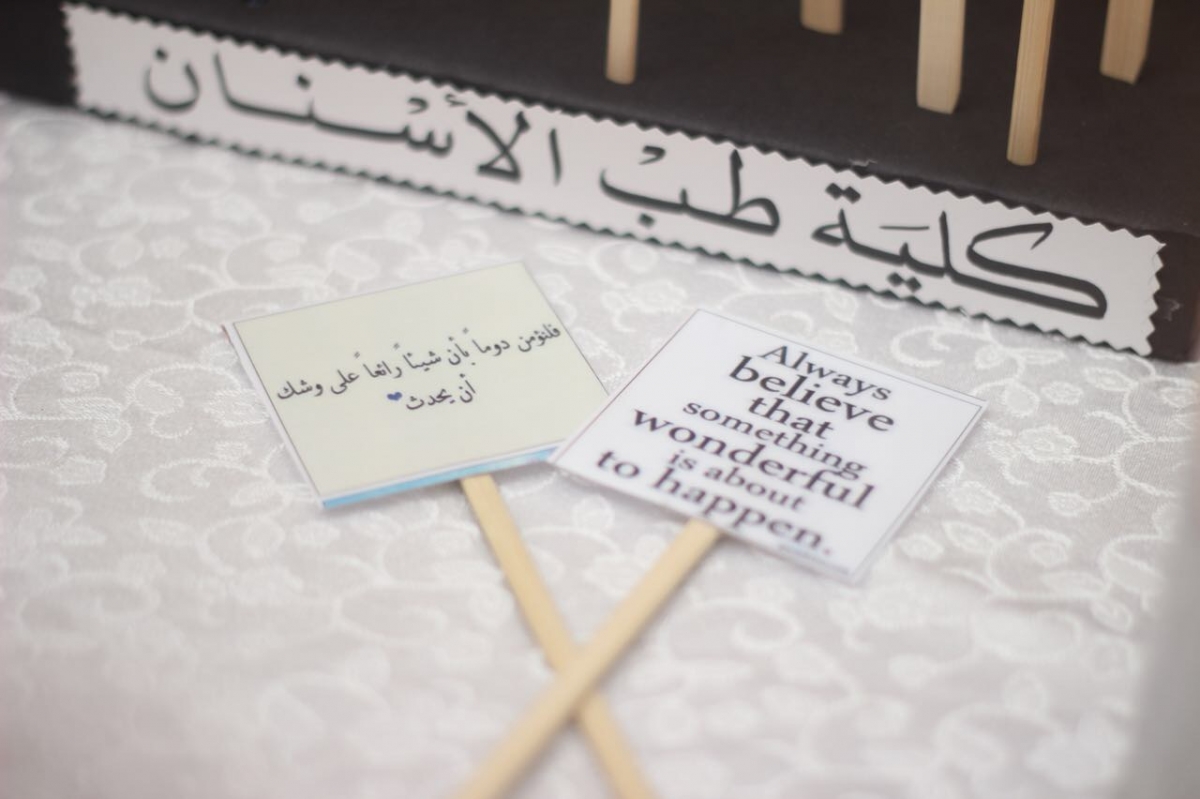 كلية طبْ الأسْنان
فلنؤمن دوماً بأن شيئاً رائعاً على وشك
أن يحدث
Always
believe
that
something
wonderful
is about
to happen.